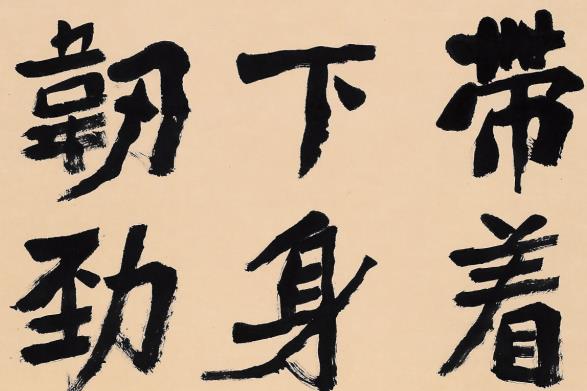 带着
下身
韧劲